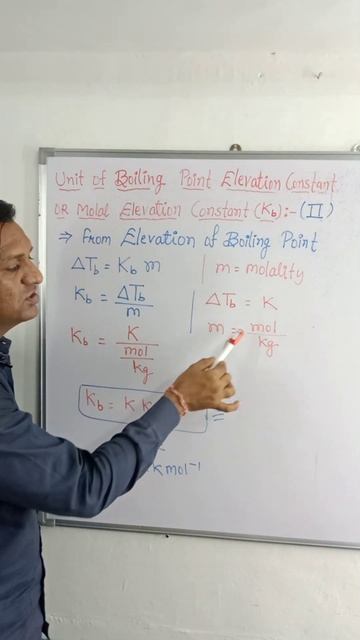 Unit of Boiling Point Elevation Constant
OR Molal Elevation Constant (Kb):- (II)
⇒ from Elevation of Boiling Point
ΔTb = Kb m
m = molality
Kb = ΔTb / m
ΔTb = K
m = mol / kg
Kb = K / mol / kg
Kb = K K
K mol⁻¹